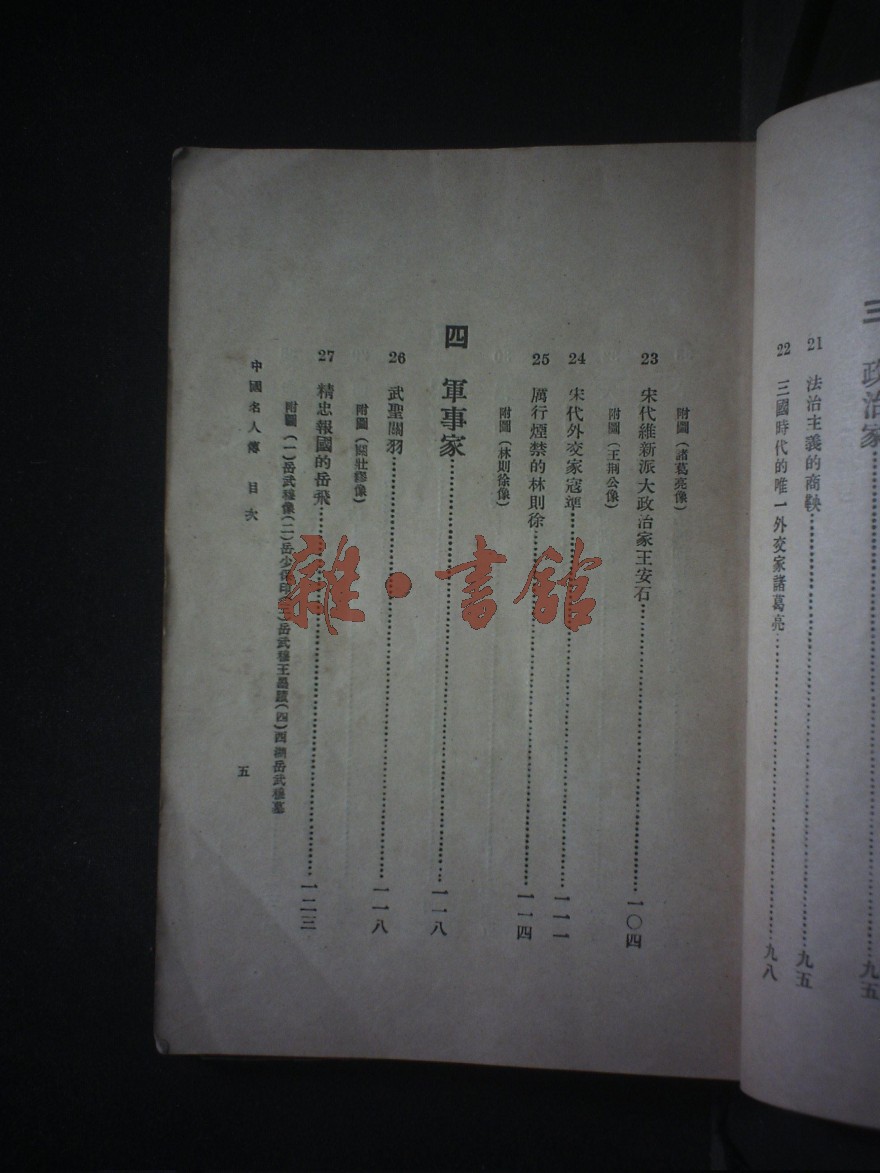 三 政治家……九五
21 法治主義的商鞅……九五
22 三國時代的唯一外交家諸葛亮……九八
附圖（諸葛亮像）
23 宋代維新派大政治家王安石……一〇四
附圖（王荆公像）
24 宋代外交家寇準……一一一
25 厲行煙禁的林則徐……一一四
附圖（林則徐像）
四 軍事家……一一八
26 武聖關羽……一一八
附圖（關壯繆像）
27 精忠報國的岳飛……一二三
附圖（一）岳武穆像（二）岳少保印（三）岳武穆王墨蹟（四）西湖岳武穆墓
中國名人傳 目次
五
雜·書館